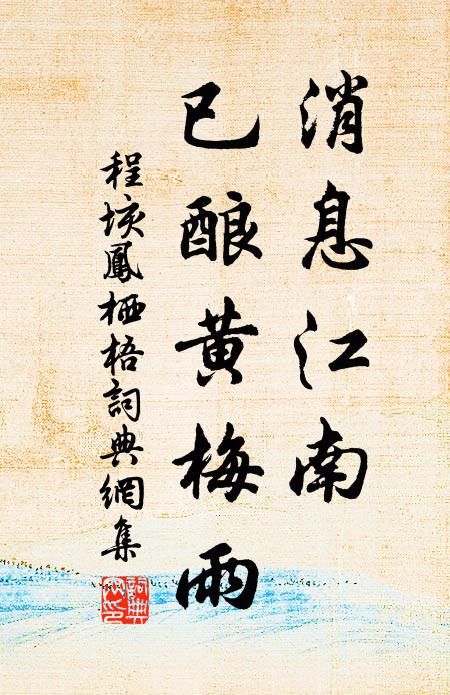 消息江南
已酿黄梅雨
程垓鳳栖梧詞典網集